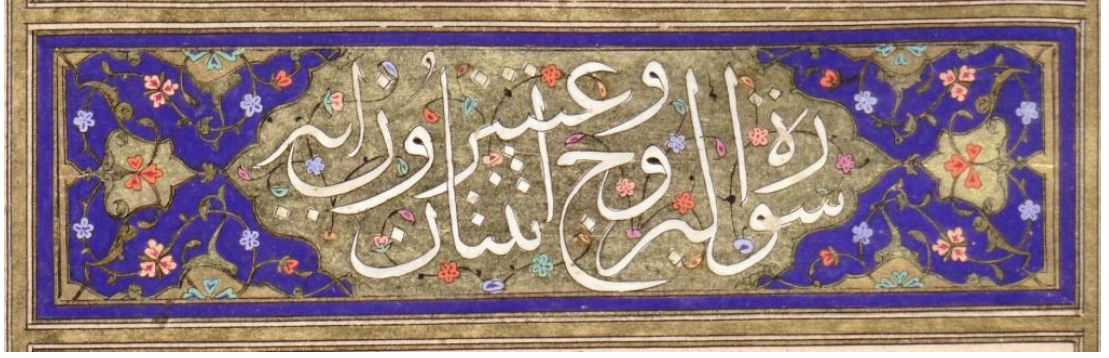 سورة البروج اثنتان وعشرون اية